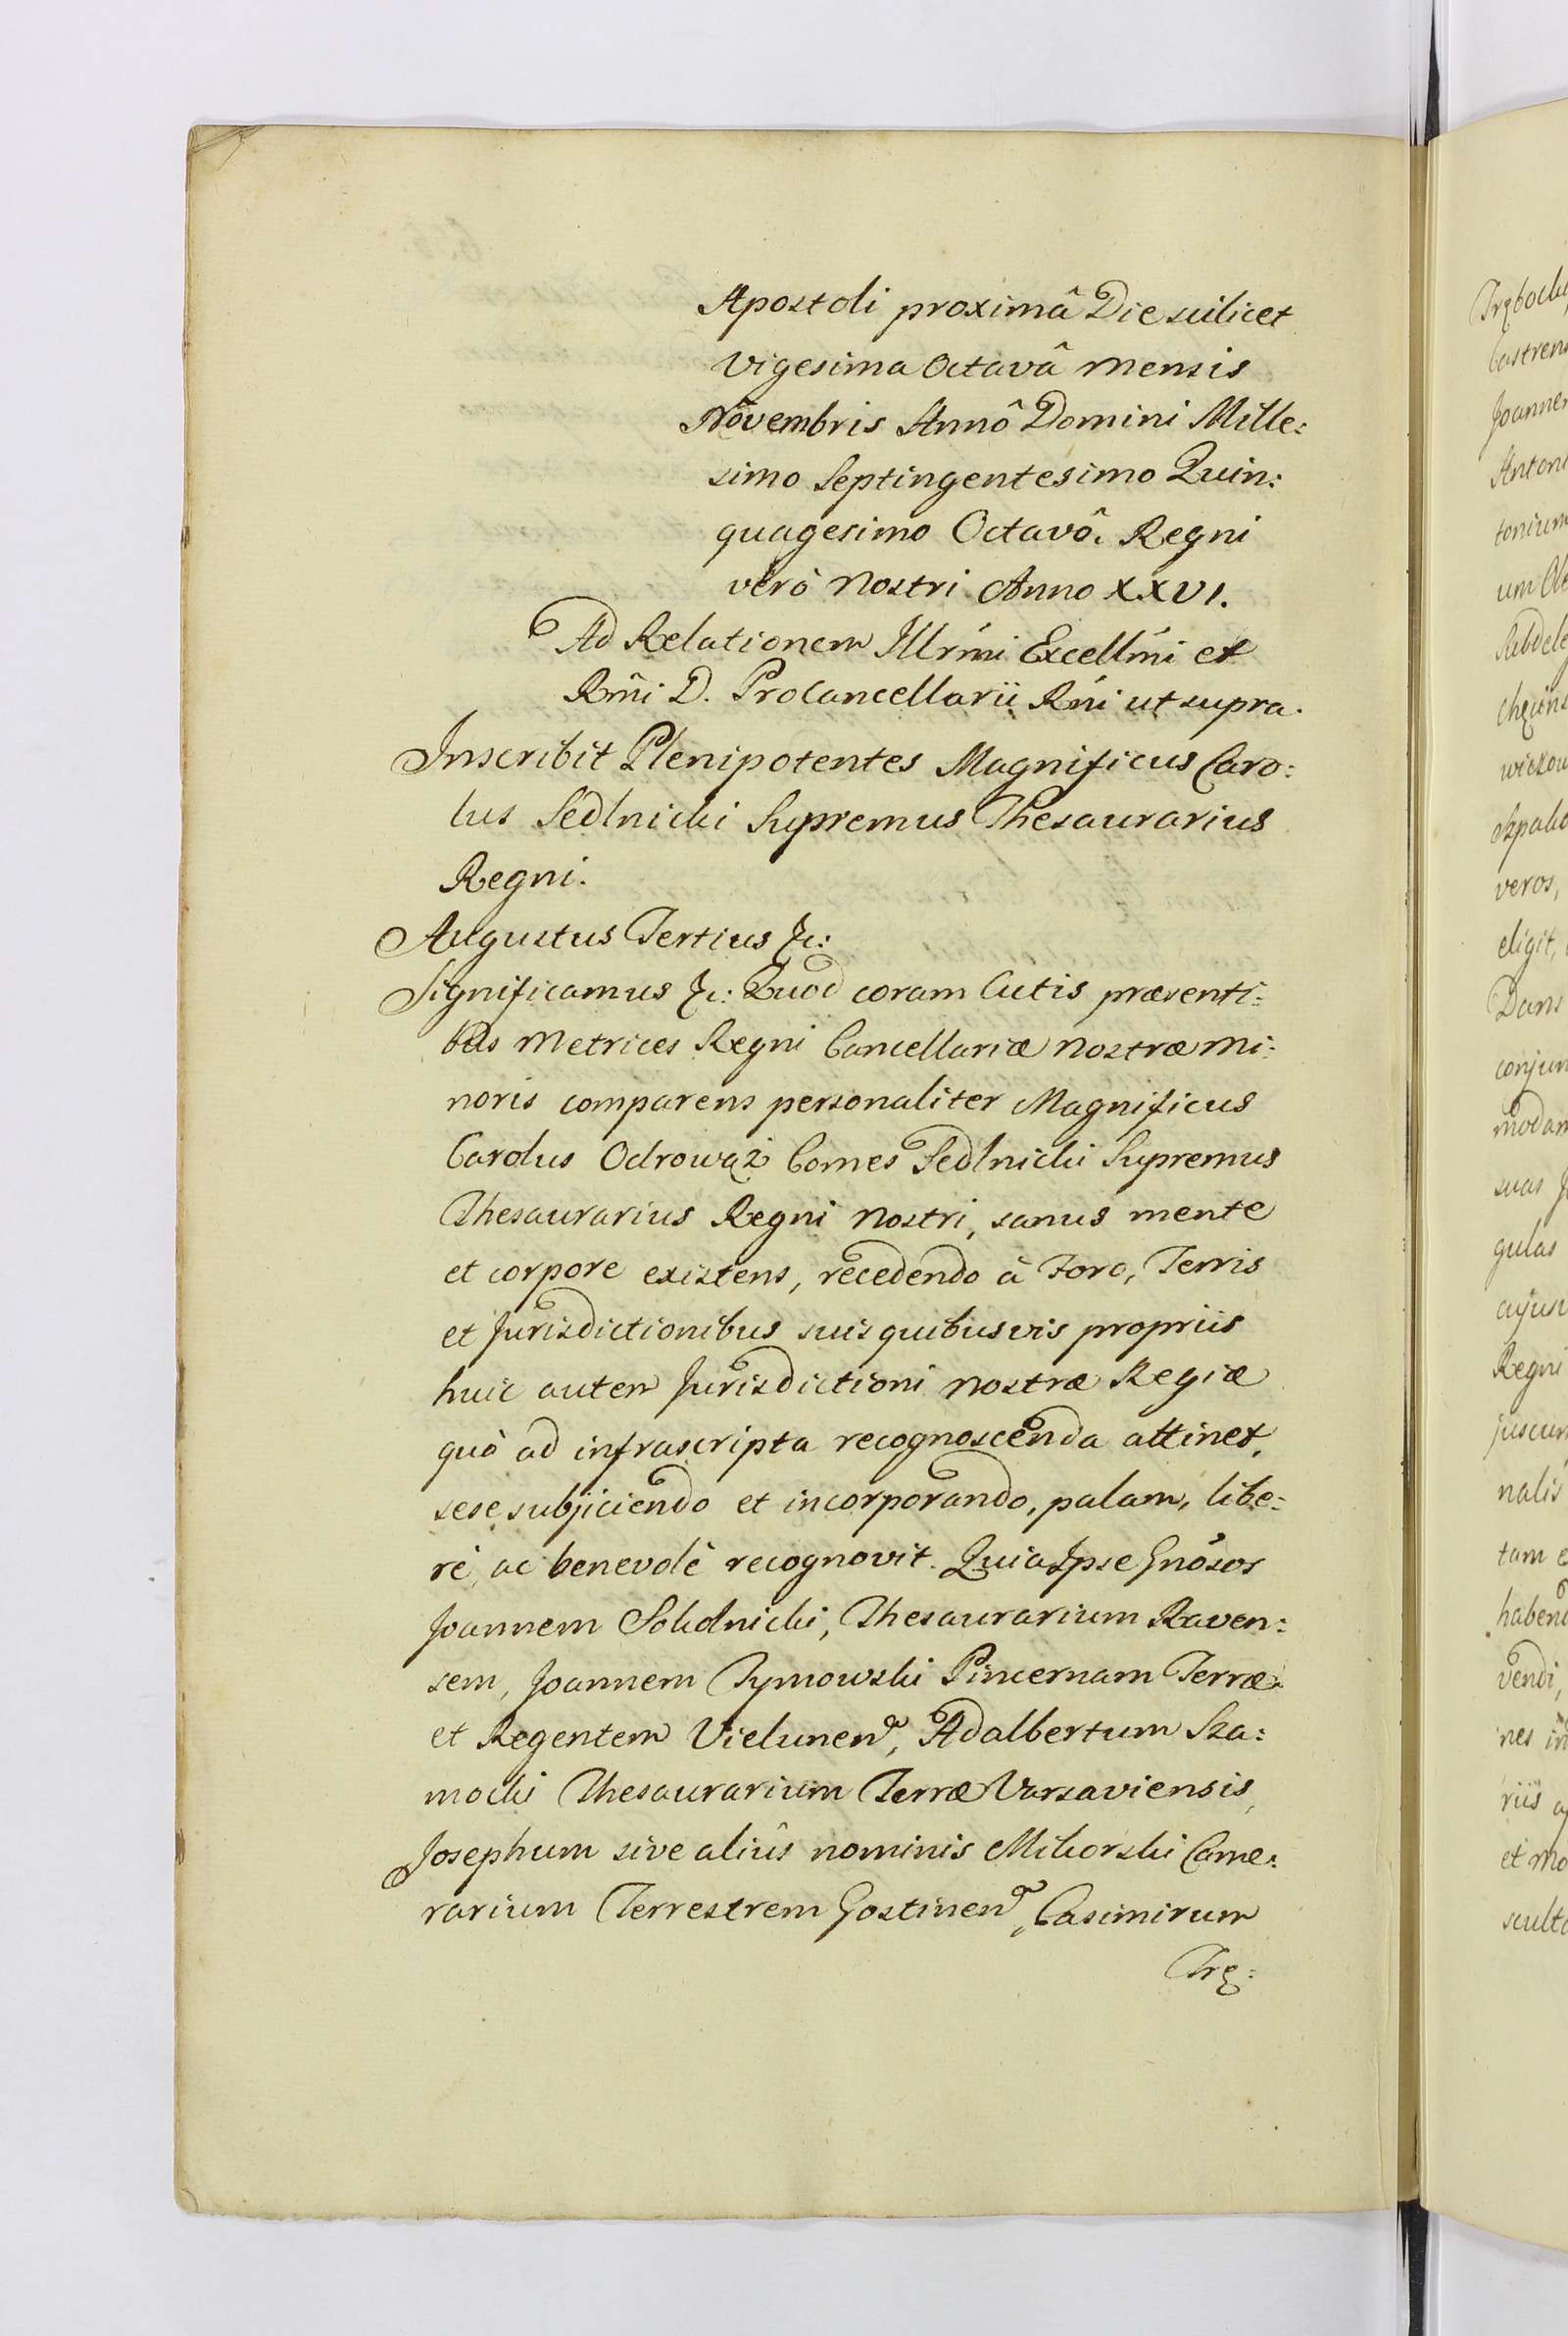 Apostoli proximâ Die scilicet
vigesima Octavâ mensis
Novembris Annô Domini Mille:
simo Septingentesimo Quin:
quagesimo Octavô. Regni
verò nostri Anno XXVI.
Ad Relationem Illrmi Excellmi et
Rmi D. ProCancellarii Rni ut supra.
Inscribit Plenipotentes Magnificus Caro:
lus Sedlnicki Supremus Thesaurarius
Regni.
Augustus Tertius &c:
Significamus &c: Quod coram Actis præsenti:
bus Metrices Regni Cancellariæ nostræ Mi:
noris comparens personaliter Magnificus
Carolus Odrowąż Comes Sedlnicki Supremus
Thesaurarius Regni nostri, sanus mente
et corpore existens, recedendo à Foro, Terris
et Jurisdictionibus suis quibusvis propriis
huic autem Jurisdictioni nostræ Regiæ
quò ad infrascripta recognoscenda attinet,
sese subjiciendo et incorporando, palam, libe:
rè, ac benevolè recognovit. Quia Ipse Gnosos
Joannem Sokolnicki, Thesaurarium Raven:
sem, Joannem Tymowski Pincernam Terræ
et Regentem Vielunen, Adalbertum Sza:
mocki Thesaurarium Terræ Varsaviensis,
Josephum sive aliûs nominis Mikorski Came:
rarium Terrestrem Gostinen, Casimirum
Trę:
Castrens
Joannem
tonium
veros,
eligit,
Dans
gulas
Regni
nalis
tam
vendi,
nes
riis